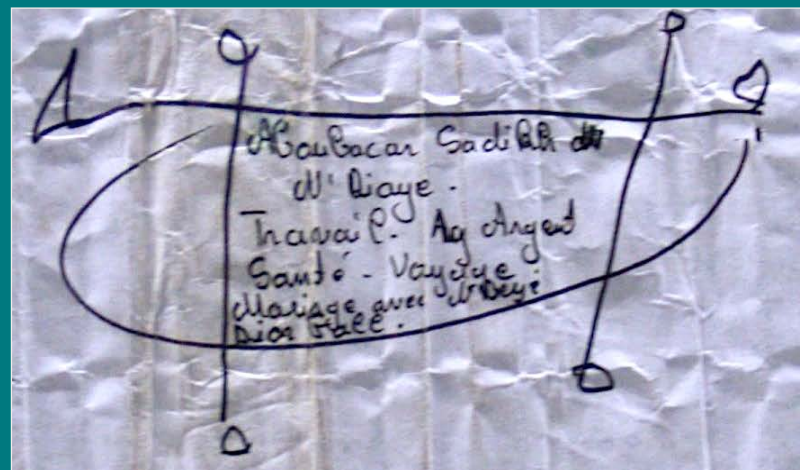 Aboubacar Sadikh
N'Diaye.
Travail. Ag Argent
Santé - Voyage
Mariage avec N'Deye
Dior Fall.